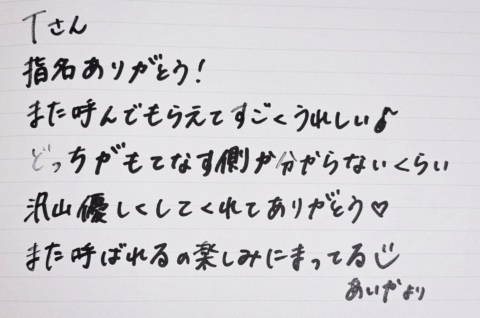 Tさん
指名ありがとう!
また呼んでもらえてすごくうれしい♪
どっちがもてなす側か分からないくらい
沢山優しくしてくれてありがとう♡
また呼ばれるの楽しみにまってる☺
あいかより